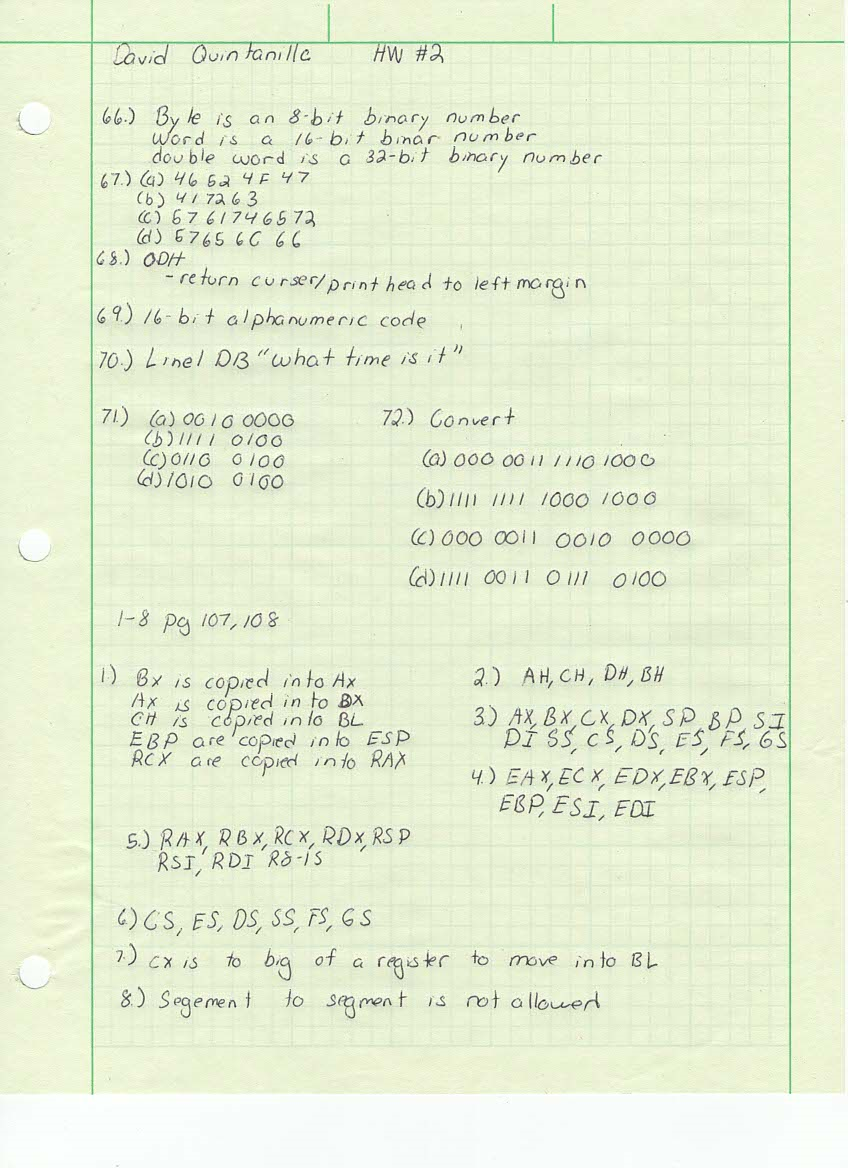 David Quintanilla HW #2
66.) Byte is an 8-bit binary number
Word is a 16-bit binar number
double word is a 32-bit binary number
67.) (a) 46 52 4F 47
(b) 417263
(c) 5761746572
(d) 5765 6C 6C
68.) ODH
- return curser/print head to left margin
69.) 16-bit alphanumeric code
70.) Line1 DB "What time is it"
71.) (a) 0010 0000
(b) 1111 0100
(c) 0110 0100
(d) 1010 0100
72.) Convert
(a) 000 0011 1110 1000
(b) 1111 1111 1000 1000
(c) 000 0011 0010 0000
(d) 1111 0011 0111 0100
1-8 pg 107, 108
1.) BX is copied into AX
AX is copied in to BX
CH is copied into BL
EBP are copied into ESP
RCX are copied into RAX
2.) AH, CH, DH, BH
3.) AX, BX, CX, DX, SP, BP, SI
DI SS, CS, DS, ES, FS, GS
4.) EAX, ECX, EDX, EBX, ESP,
EBP, ESI, EDI
5.) RAX, RBX, RCX, RDX, RSP
RSI, RDI R8-15
6.) CS, ES, DS, SS, FS, GS
7.) CX is to big of a register to move into BL
8.) Segement to segment is not allowed